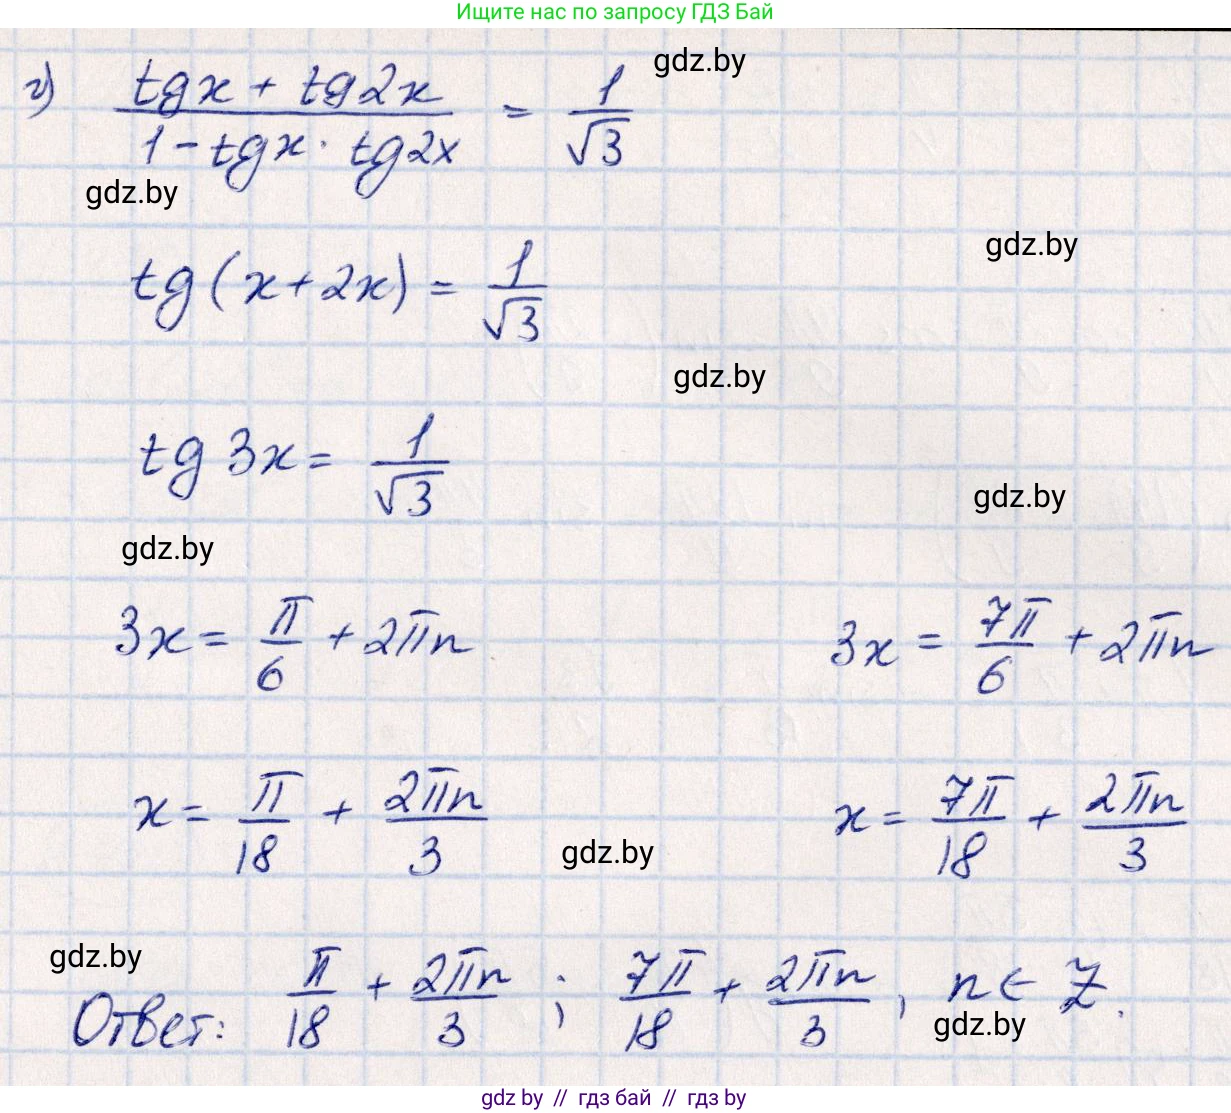 Ищите нас по запросу ГДЗ Бай
г) (tgx + tg2x)/(1 - tgx · tg2x) = 1/√3
gdz.by
gdz.by
gdz.by
tg(x+2x) = 1/√3
gdz.by
tg 3x = 1/√3
gdz.by
gdz.by
3x = π/6 + 2πn 3x = 7π/6 + 2πn
x = π/18 + 2πn/3 x = 7π/18 + 2πn/3
gdz.by
gdz.by
Ответ: π/18 + 2πn/3 ; 7π/18 + 2πn/3, n ∈ Z.
gdz.by
gdz by // гдз бай // гдз by